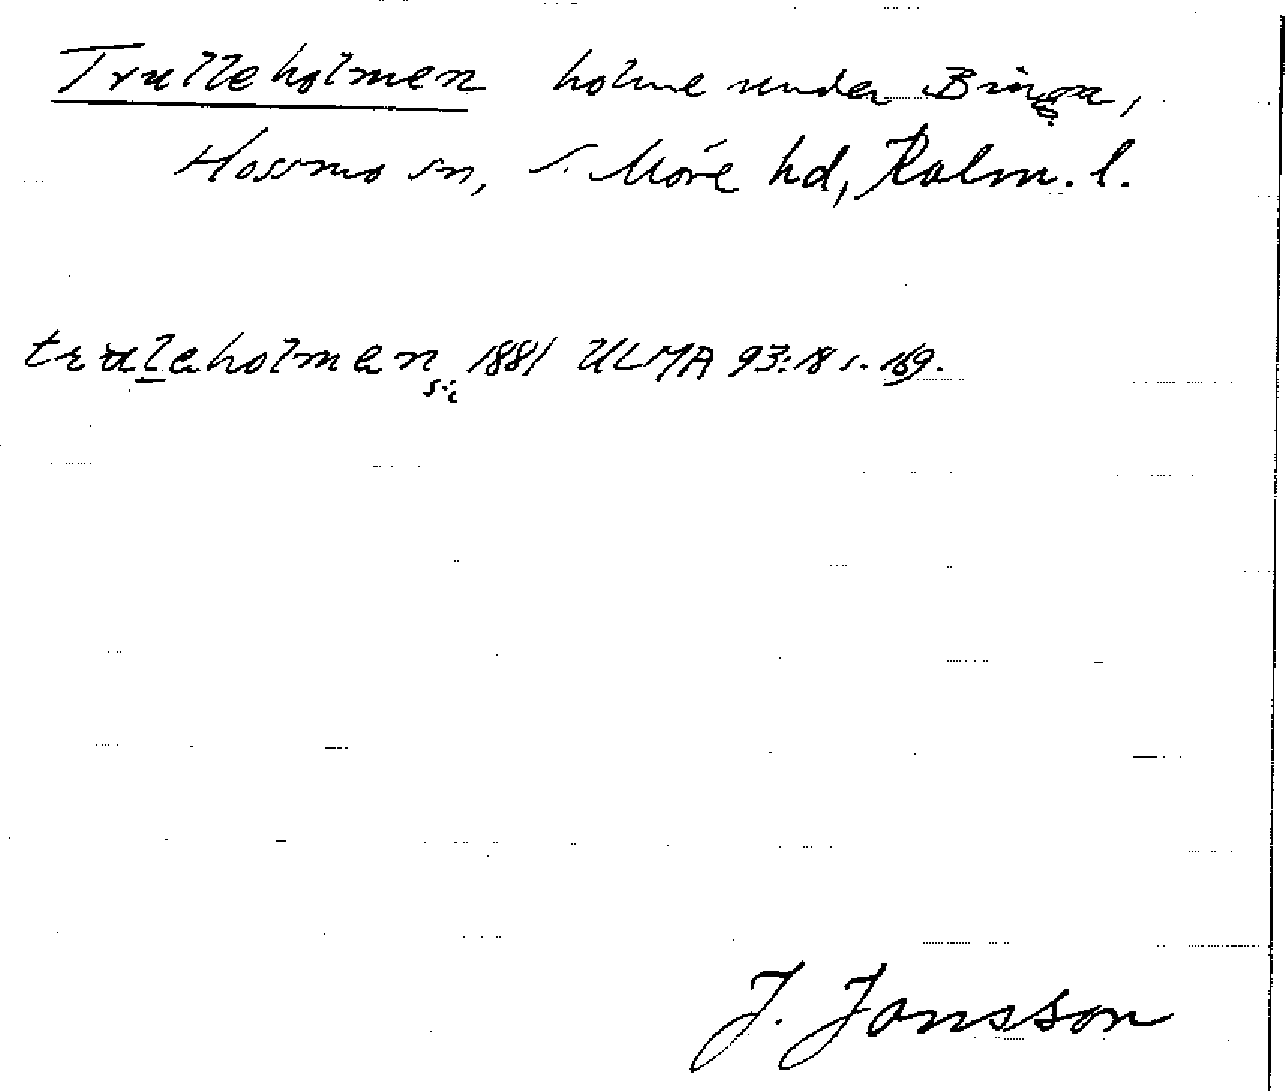 Trulleholmen holme under Binga,
Hossmo sn, S. Möre hd, Kalm. l.
trulleholmen 1881 ULMA 93:18 s. 169.
sic
J. Jonsson